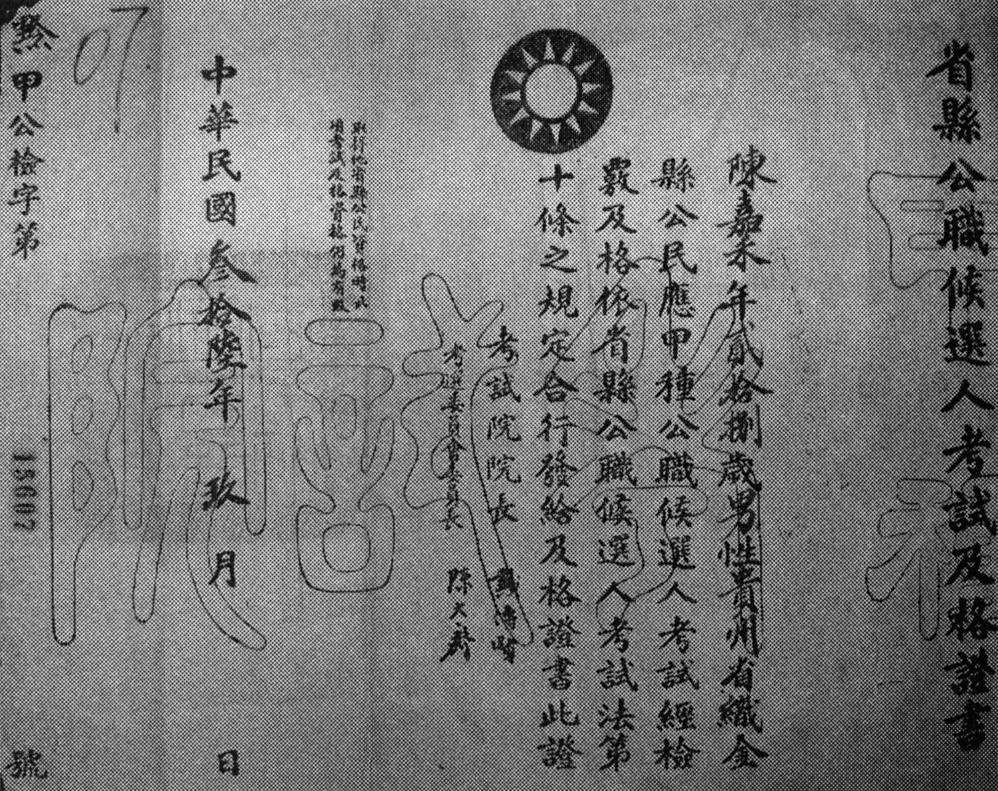 省縣公職候選人考試及格證書
陳嘉禾年貳拾捌歲男性貴州省織金
縣公民應甲種公職候選人考試經檢
覈及格依省縣公職候選人考試法第
十條之規定合行發給及格證書此證
考試院院長 戴傳賢
考選委員會委員長 陳大齊
取得他省縣公民資格時此
項考試及格資格仍為有效
中華民國叁拾陸年玖月 日
黔甲公檢字第15607號